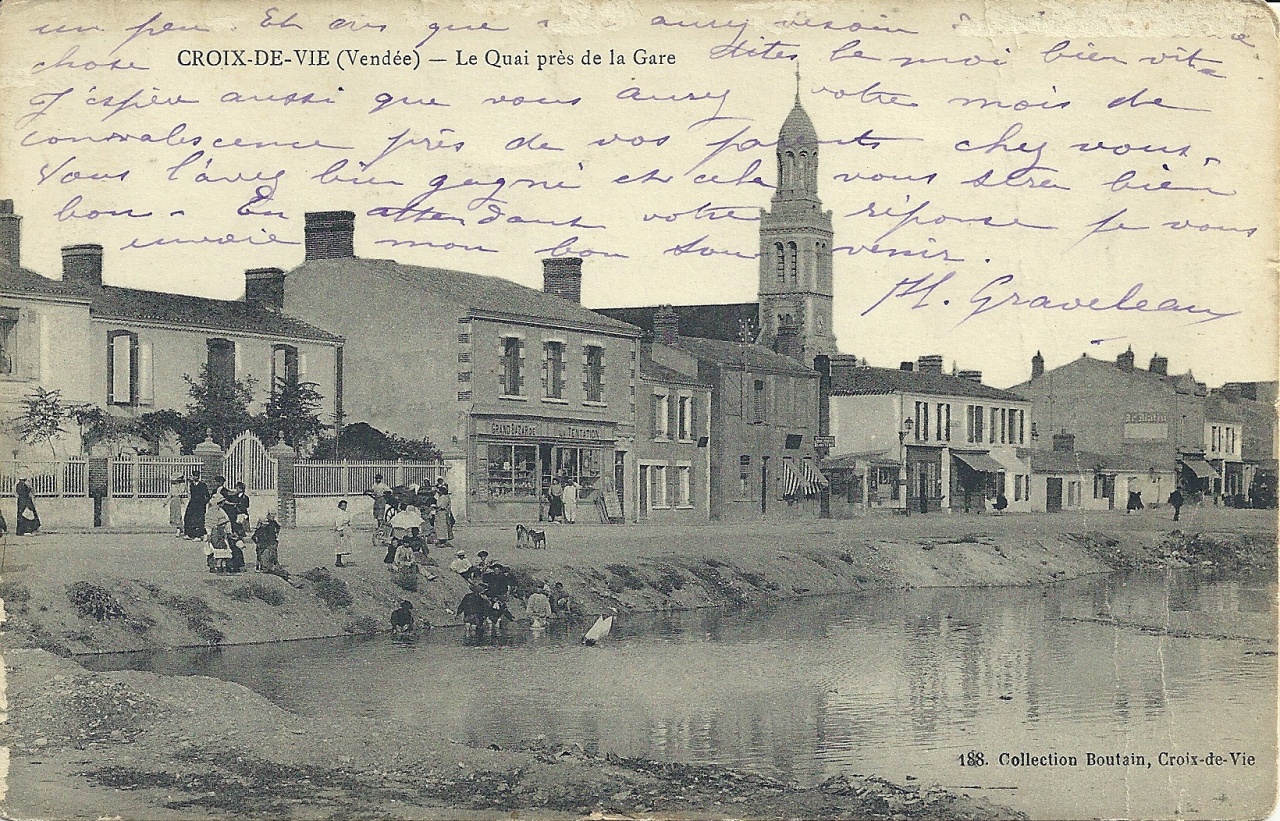 un peu. Et ... que ... aurez besoin
chose
CROIX-DE-VIE (Vendée) — Le Quai près de la Gare
dites le moi bien vite
J'espère aussi que vous aurez votre mois de
convalescence près de vos parents chez vous.
Vous l'avez bien gagné et cela vous sera bien
bon. En attendant votre réponse je vous
envoie mon bon souvenir.
M. Graveleau
GRAND BAZAR DE LA TENTATION
188. Collection Boutain, Croix-de-Vie